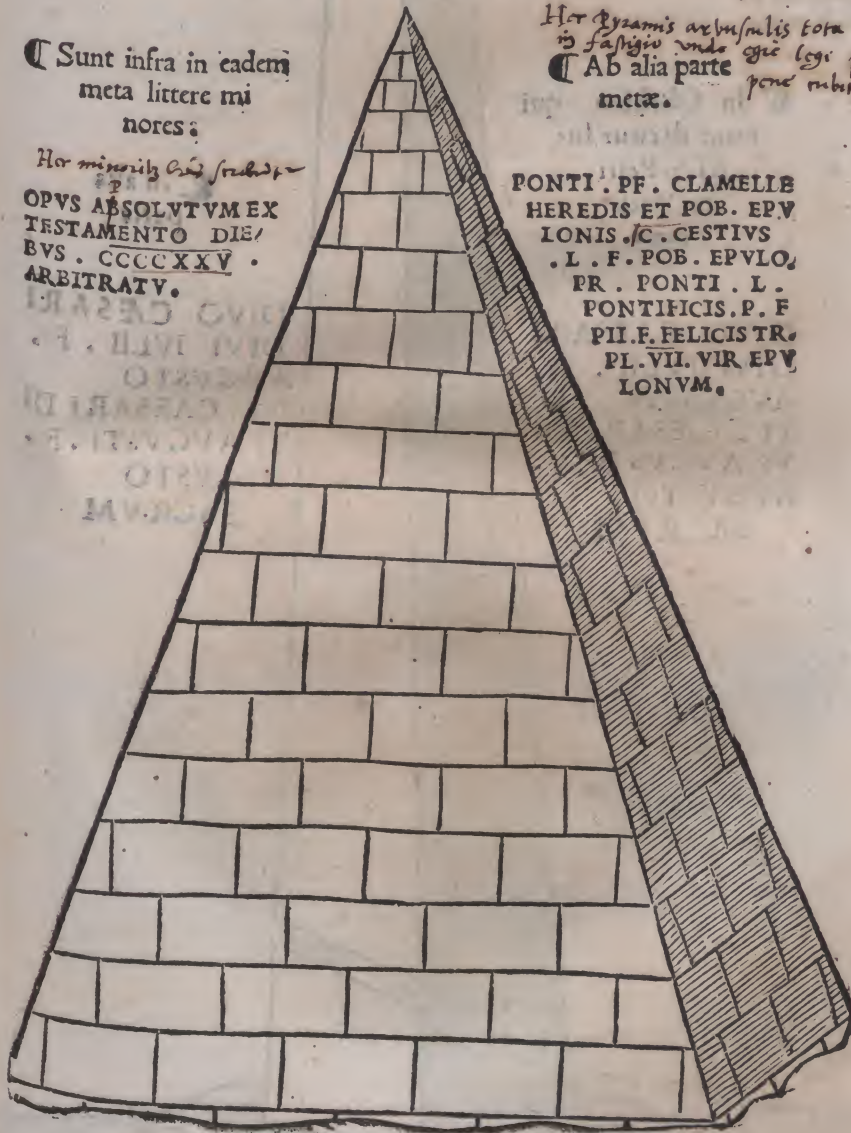 ⁋ Sunt infra in eadem
meta littere mi
nores:
Hec
OPVS ABSOLVTVM EX
P
TESTAMENTO DIE/
BVS . CCCCXXV .
ARBITRATV.
Hec Pyramis arbusculis tota
in fastigio legi
⁋ Ab alia parte
pene
metæ.
PONTI . PF . CLAMELLE
HEREDIS ET POB. EPV
LONIS ./C . CESTIVS
. L . F . POB. EPVLO.
PR . PONTI . L .
PONTIFICIS . P . F
PII.F. FELICIS TR.
PL . VII. VIR EPV
LONVM.